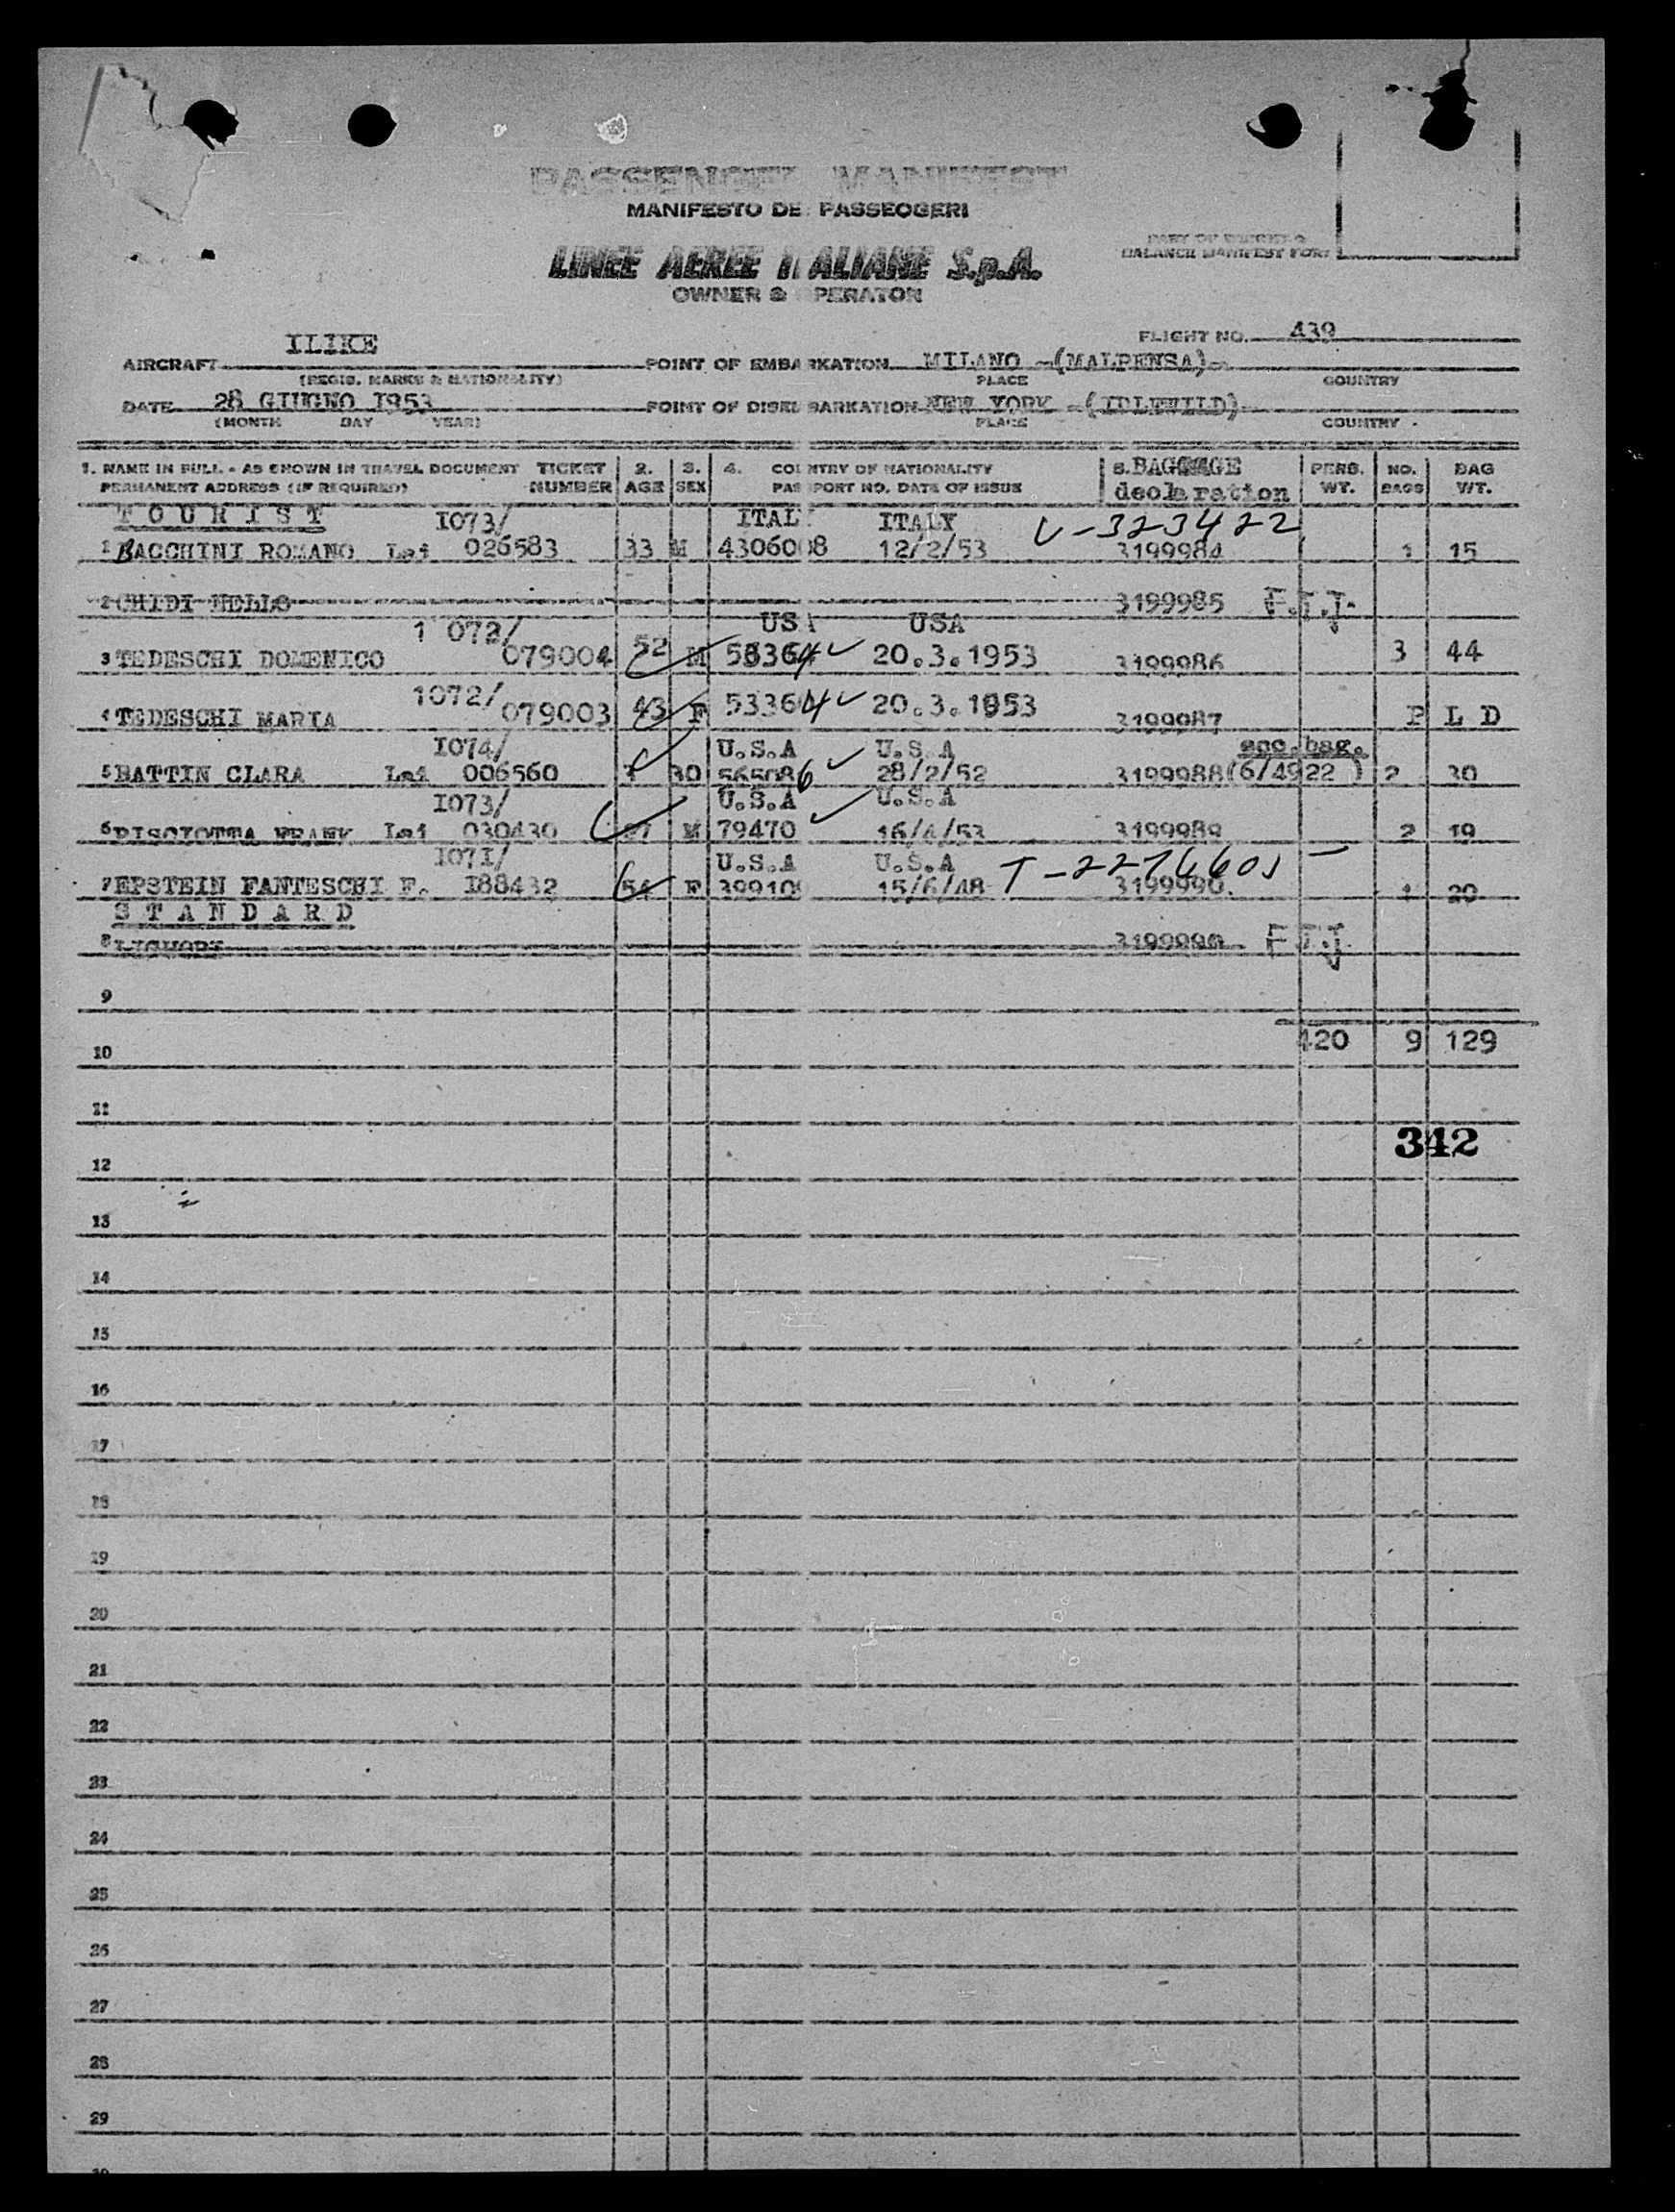 PASSENGER MANIFEST
MANIFESTO DEI PASSEGGERI
LINEE AEREE ITALIANE S.p.A.
OWNER & OPERATOR
PART OF WEIGHT &
BALANCE MANIFEST FORM
FLIGHT NO. 439
AIRCRAFT ILIKE POINT OF EMBARKATION MILANO -(MALPENSA)-
(REGIS. MARKS & NATIONALITY) PLACE COUNTRY
DATE 28 GIUGNO 1953 POINT OF DISEMBARKATION NEW YORK -(IDLEWILD)-
(MONTH DAY YEAR) PLACE COUNTRY
1. NAME IN FULL - AS SHOWN IN TRAVEL DOCUMENT TICKET 2. 3. 4. COUNTRY OF NATIONALITY 5. BAGGAGE PERS. NO. BAG
PERMANENT ADDRESS (IF REQUIRED) NUMBER AGE SEX PASSPORT NO. DATE OF ISSUE declaration WT. BAGS WT.
TOURIST I073/ ITALY ITALY V-323422
1 BACCHINI ROMANO Lai 026583 33 M 4306008 12/2/53 3199984 1 15
2 CHIDI NELLO 3199985 F.T.J.
1 072/ USA USA
3 TEDESCHI DOMENICO 079004 52 M 53364 20.3.1953 3199986 3 44
1072/
4 TEDESCHI MARIA 079003 43 F 53364 20.3.1953 3199987 P L D
I074/ U.S.A U.S.A acc.bag.
5 BATTIN CLARA Lai 006560 30 565086 28/2/52 3199988 (6/4922 ) 2 30
I073/ U.S.A U.S.A
6 PISCIOTTA FRANK Lai 030430 M 79470 16/4/53 3199989 2 19
I071/ U.S.A U.S.A
7 EPSTEIN FANTESCHI F. I88432 54 F 15/6/48 3199990. 1 20
STANDARD
8 LIGUORI F.T.J.
9
420 9 129
10
11
342
12
13
14
15
16
17
18
19
20
21
22
23
24
25
26
27
28
29